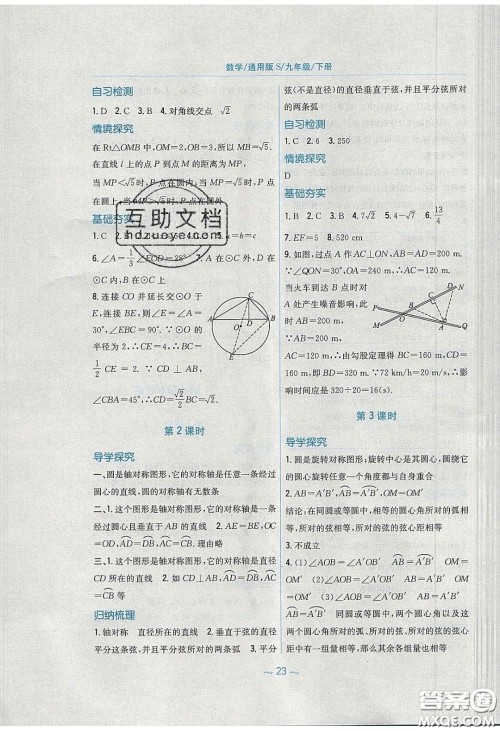 数学/通用版S/九年级/下册
自习检测
1. D  2. C  3. B  4. 对角线交点  √2
情境探究
在Rt△OMB中,OM=2,OB=3,所以MB=√5.
在直线l上的点P到点M的距离为MP,
当MP<√5时,P点在圆内;当MP=√5
时,P点在圆上;当MP>√5时,P点在圆外
基础夯实
1. C  2. B
6. ∠A=1/3∠EOD=28°  7. A在⊙O外,D在
⊙O内,B在⊙O上
8. 连接CO并延长交⊙O于
E,连接BE,则∠E=∠A=
30°,∠EBC=90°. ∵⊙O的
半径为2,∴CE=4,∴BC=
1/2 CE=2. ∵CD⊥AB,
∠CBA=45°,∴CD=√2/2 BC=√2
A
B
C
D
E
O
第2课时
导学探究
一、圆是轴对称图形,它的对称轴是任意一条经过
圆心的直线,圆的对称轴有无数条
二、1. 这个图形是轴对称图形,它的对称轴是经
过圆心且垂直于AB的直线  2. AE=BE,OC=
OD,AD=DB,AC=CB. 理由略
三、1. 这个图形是轴对称图形,它的对称轴是直径
CD所在的直线  2. 如CD⊥AB,AD=DB,AC
=CB等
归纳梳理
1. 轴对称  直径所在的直线  2. 垂直于弦的直径
平分这条弦,并且平分弦所对的两条弧  3. 平分
弦(不是直径)的直径垂直于弦,并且平分弦所对
的两条弧
自习检测
1. C  2. 6  3. 250
情境探究
D
基础夯实
1. B  2. B  3. B  4. 7√2  5. 4-√7  6. 13/4
7. EF=5  8. 520 cm
9. 如图,过点A作AC⊥ON,AB=AD=200 m.
∵∠QON=30°,OA=240 m,∴AC=120 m.
当火车到达B点时对
A处产生噪音影响,此
时AB=200 m,
∵AB=200 m,
AC=120 m,∴由勾股定理得BC=160 m,CD=160
m,即BD=320 m. ∵72 km/h=20 m/s,∴影
响时间应是320÷20=16(s).
N
D
C
B
M
O
P
A
Q
第3课时
导学探究
1. 圆是旋转对称图形,旋转中心是其圆心,圆绕它
的圆心旋转任意一个角度都与自身重合
2. AB=A′B′,AB=A′B′,OM=OM′
结论:在同圆或等圆中,相等的圆心角所对的弧相
等,所对的弦相等,所对弦的弦心距相等
3. 不成立
4. (1)∠AOB=∠A′OB′  AB=A′B′  OM=
OM′  (2)∠AOB=∠A′OB′  AB=A′B′  OM
=OM′  (3)∠AOB=∠A′OB′  AB=A′B′
AB=A′B′  同圆或等圆中,两个圆心角以及这
两个圆心角所对的弧、所对的弦、所对的弦的弦心
距中,有一组量相等,那么所对应的其余各组量都
分别相等
23
互助文档
hdzuoye.com
答案圈
MXQE.COM